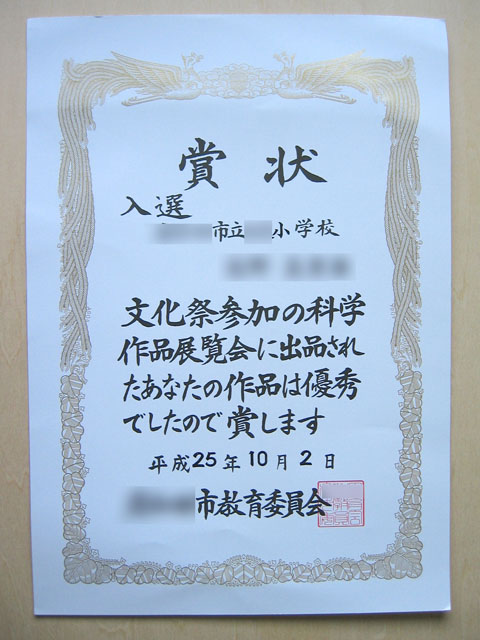 賞状
入選
市立 小学校
文化祭参加の科学
作品展覧会に出品され
たあなたの作品は優秀
でしたので賞します
平成25年10月2日
市教育委員会